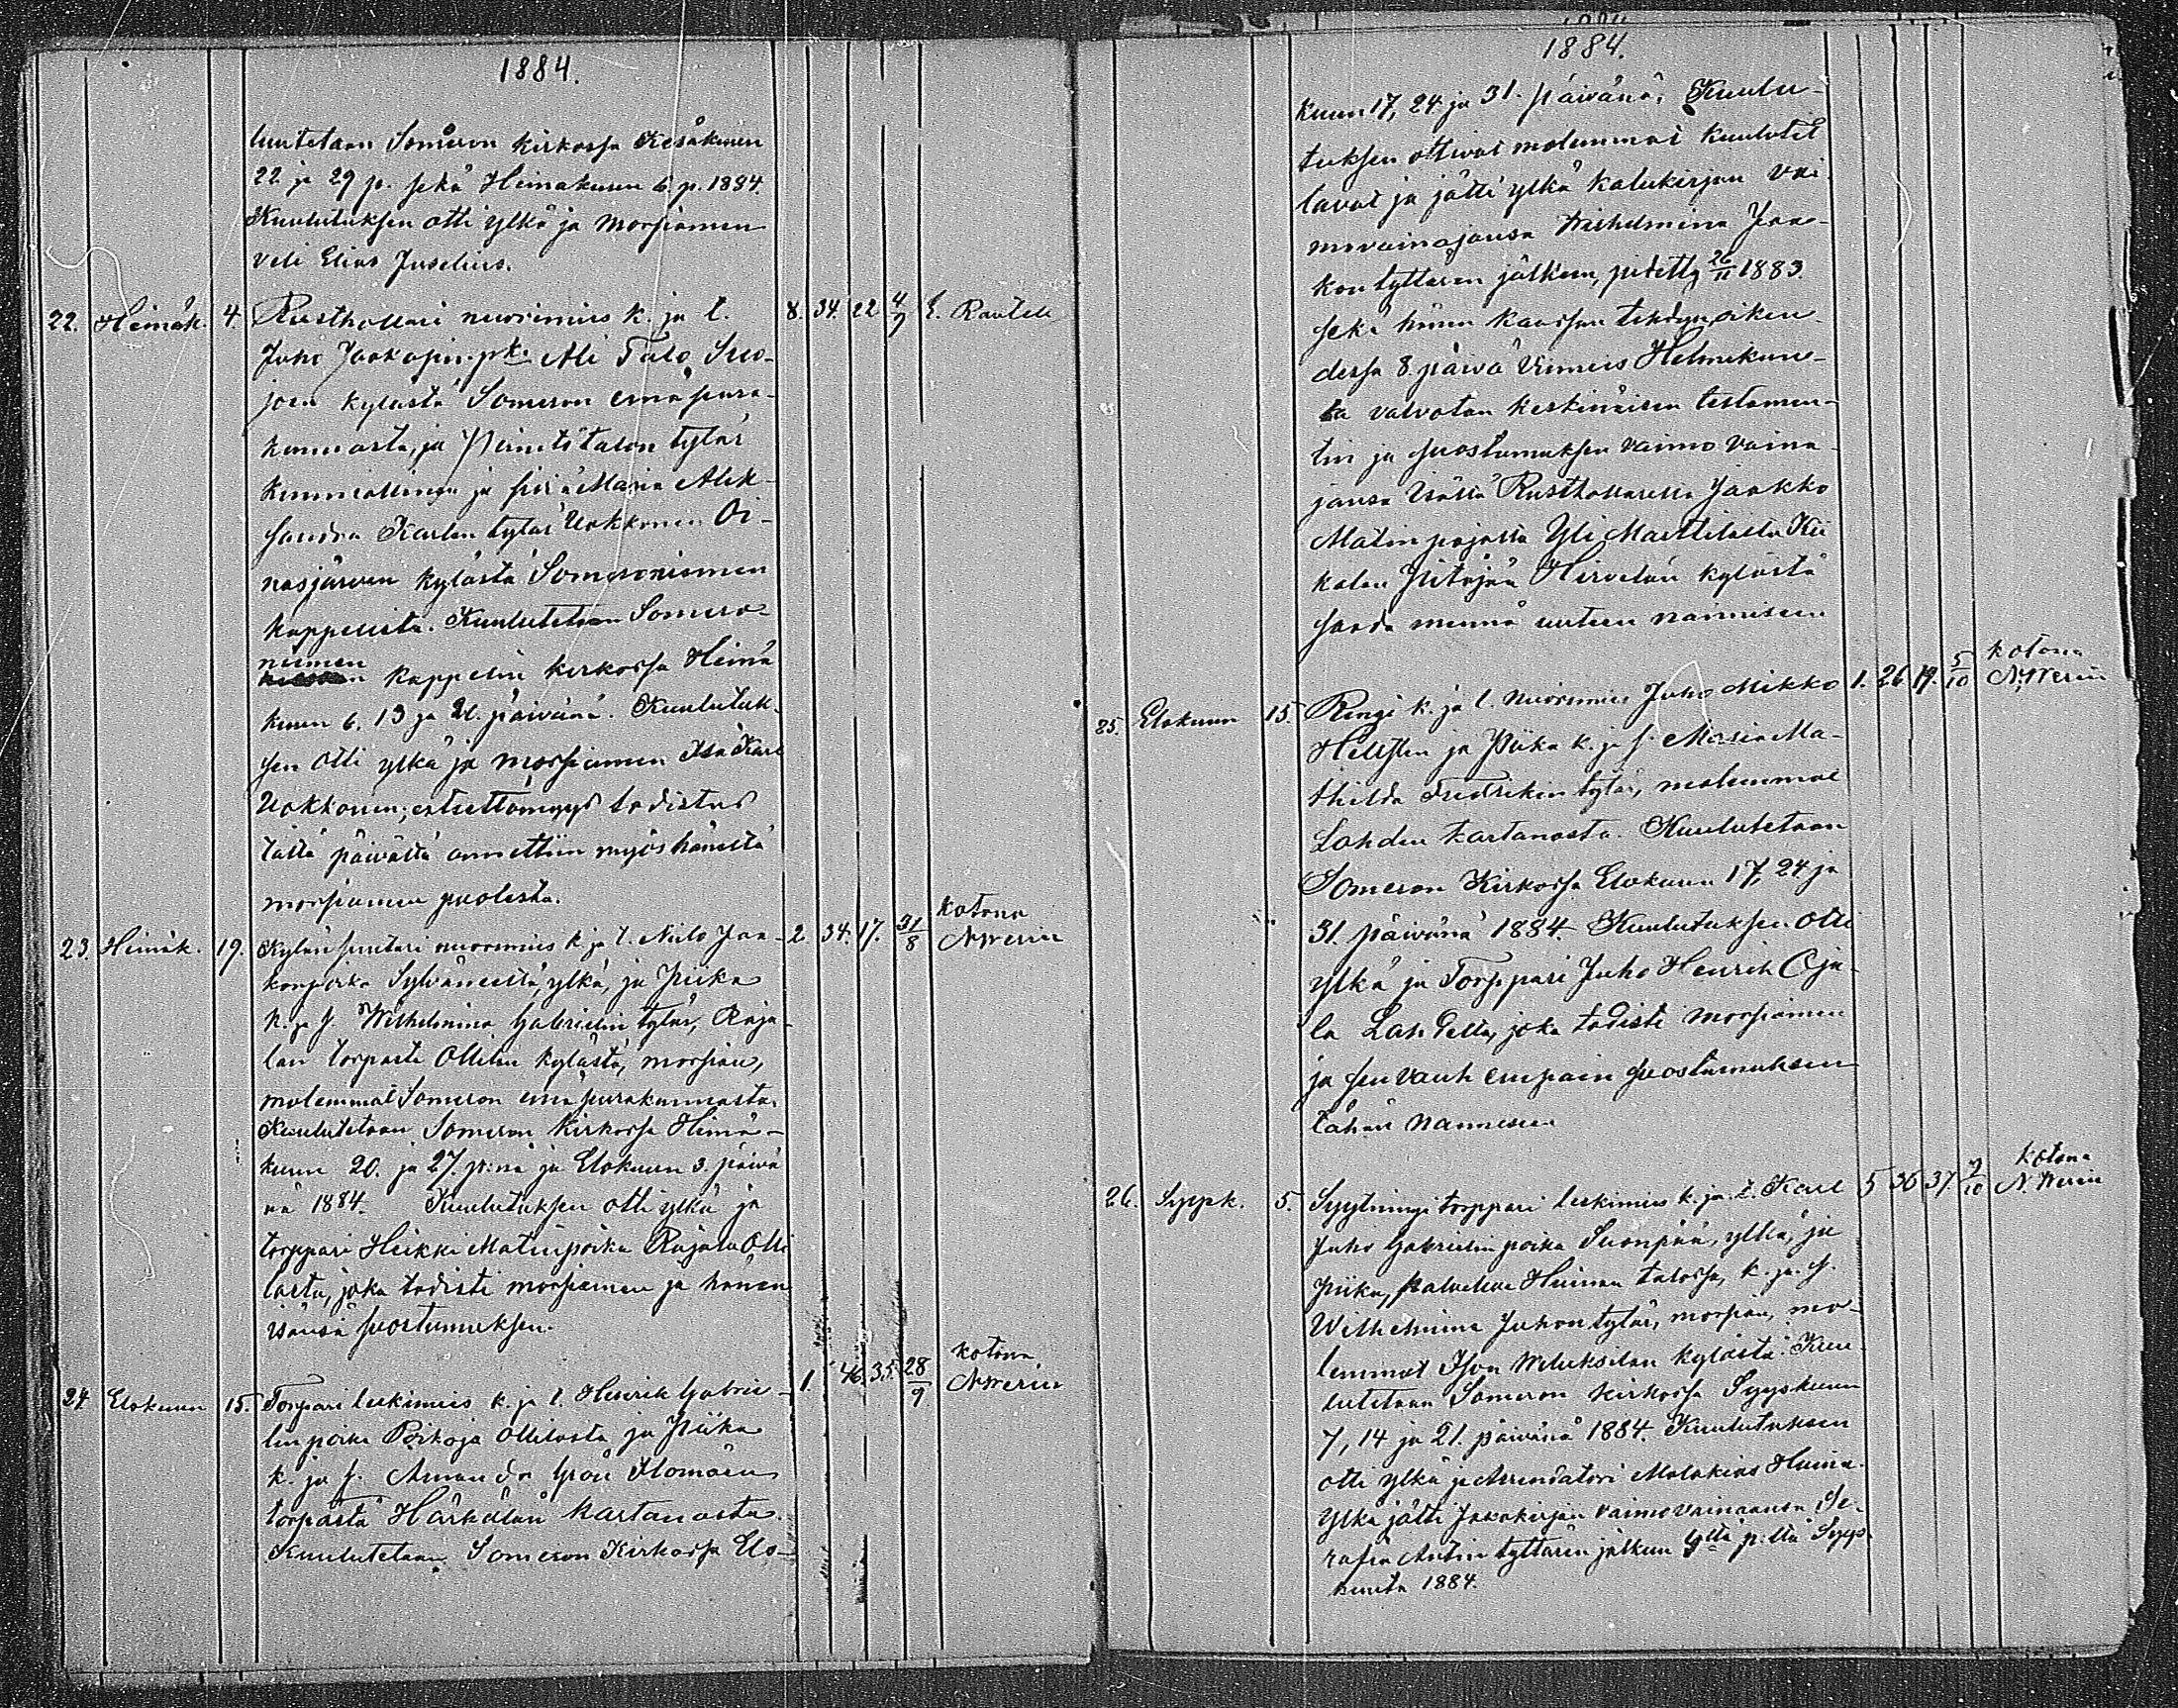 1884.
luutetaan Someron kirkossa Kesäkuun
22 ja 29 p. sekä Heinäkuun 6 p. 1884.
Kuulutuksen otti ylkä ja morsiamen
veli Elias Juselius.
22. Heinäk. 4. Rusthollari nuorimies k. ja l. 8. 34. 22 4/7 E. Rautell
Juho Jaakopin.pk. Ali Talo Suo-
joen kylästä Someron emäseura-
kunnasta, ja Perintötalon tytär
kunniallinen ja siviä Maria Alek-
sandra Kaarlen tytär Uokkonen Oi-
nasjärven kylästä Somerniemen
kappelista. Kuulutetaan Somero-
niemen kappelin kirkossa Heinä
kuun 6. 13 ja 20. päivänä. Kuulutuk-
sen otti ylkä ja morsiamen Isä Karl
Uokkonen; esteettömyys todistus
tältä päivältä annettiin myös hänestä
morsiamen puolesta.
23. Heinäk. 19. Kylänsuutari nuorimies k ja l. Niilo Jaa- 2 34. 17. 31/8 kotona N. Werin
konpoika Sylvänestä, ylkä, ja Piika
k. ja s. Wilhelmina Gabrielin tytär, Raja-
lan torpasta Ollilan kylästä, morsian,
molemmat Someron emäseurakunnasta.
Kuulutetaan Someron kirkossa Heinä-
kuun 20. ja 27. p:nä ja Elokuun 3. päivä
nä 1884. Kuulutuksen otti ylkä ja
torppari Heikki Matinpoika Rajala Olli
lasta, joka todisti morsiamen ja hänen
isänsä suostumuksen.
24 Elokuun 15. Torpari leskimies k. ja l. Henrik Gabrie- 1. 46. 35. 28/9 kotona N. Werin
lin poika Pitkoja Ollilasta ja Piika
k. ja s. Amanda Grön Ilomäen
torpasta Härkälän kartanosta.
Kuulutetaan Someron Kirkossa Elo-
1884.
kuun 17, 24 ja 31. päivänä. Kuulu-
tuksen ottivat molemmat kuulutet
tavat ja jätti ylkä kalukirjan vai-
movainajansa Wilhelmina Jaa-
kon tyttären jälkeen, pidetty 26/11 1883.
sekä hänen kanssan tehdyn, oikeu-
dessa 8. päivä viimeis Helmikuu-
ta valvotun keskinäisen testamen-
tin ja suostumuksen vaimo vaina-
jansa Isältä Rusthollarilta Jaakko
Matin pojalta Yli Marttilalta Kii
kalan Pitäjän Hirvelän kylästä
saada mennä uuteen naimiseen
25. Elokuun 15. Rengi k. ja l. nuorimies Juho Mikko 1. 26 19. 5/10 kotona N. Werin
Hellsten ja Piika k. ja s. Maria Ma-
thilda Fredrikin tytär, molemmat
Lahden kartanosta. Kuulutetaan
Someron Kirkossa Elokuun 17, 24 ja
31. päivänä 1884. Kuulutuksen otti
ylkä ja Torppari Juho Henrik Oja-
la Lahdelta, joka todisti morsiamen
ja sen vanhempain suostumuksen
tähän naimiseen
26. Syysk. 5. Syytinngi torppari leskimies k. ja l. Karl 5 36 37 7/10 kotona N. Werin
Juho Gabrielin poika Suonpää, ylkä, ja
Piika, palveleva Heiman talossa, k. ja s.
Wilhelmina Juhon tytär, morsian, mo-
lemmat Ison Wiluksilan kylästä. Kuu-
lutetaan Someron kirkossa Syyskuun
7, 14 ja 21. päivänä 1884. Kuulutuksen
otti ylkä ja Arendatori Malakias
Ylkä jätti Jakokirjan vaimovainaansa Se-
rafia Antin tyttären jälkeen p.ltä Syys-
kuuta 1884.